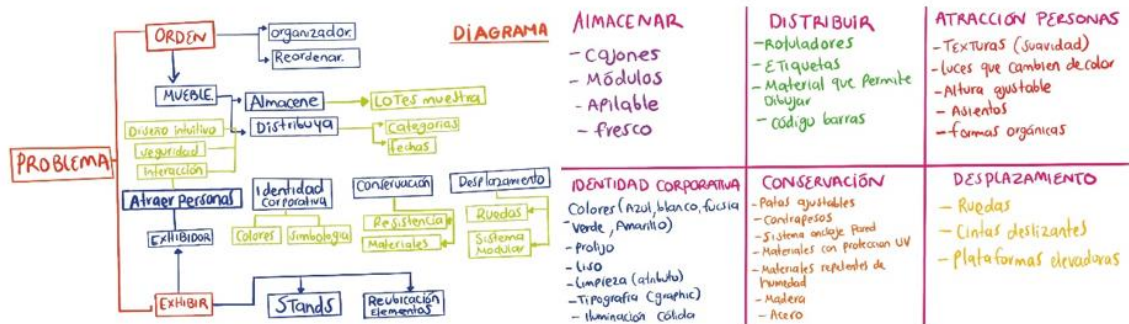 DIAGRAMA
PROBLEMA
ORDEN
organizador.
Reordenar.
MUEBLE.
Almacene
LOTES muestra
Distribuya
Categorias
fechas
Diseño intuitivo
seguridad
Interacción
Atraer personas
EXHIBIDOR
Identidad
Corporativa
Colores
Simbología
Conservación
Resistencia
Materiales
Desplazamiento
Ruedas
Sistema
Modular
EXHIBIR
STands
Reubicación
Elementos
ALMACENAR
- Cajones
- Módulos
- Apilable
- fresco
DISTRIBUIR
- Rotuladores
- Etiquetas
- Material que Permite
Dibujar
- Código barras
ATRACCIÓN PERSONAS
- Texturas (Suavidad)
- luces que cambien de color
- Altura ajustable
- Asientos
- formas orgánicas
IDENTIDAD CORPORATIVA
Colores (Azul, blanco, fucsia
verde, Amarillo)
- Prolijo
- Liso
- Limpieza (atributo)
- Tipografía (graphic)
- Iluminación Cálida
CONSERVACIÓN
- Patas ajustables
- Contrapesos
- Sistema anclaje Pared
- Materiales con protección UV
- Materiales repelentes de
humedad
- Madera
- Acero
DESPLAZAMIENTO
- Ruedas
- Cintas deslizantes
- Plataformas elevadoras